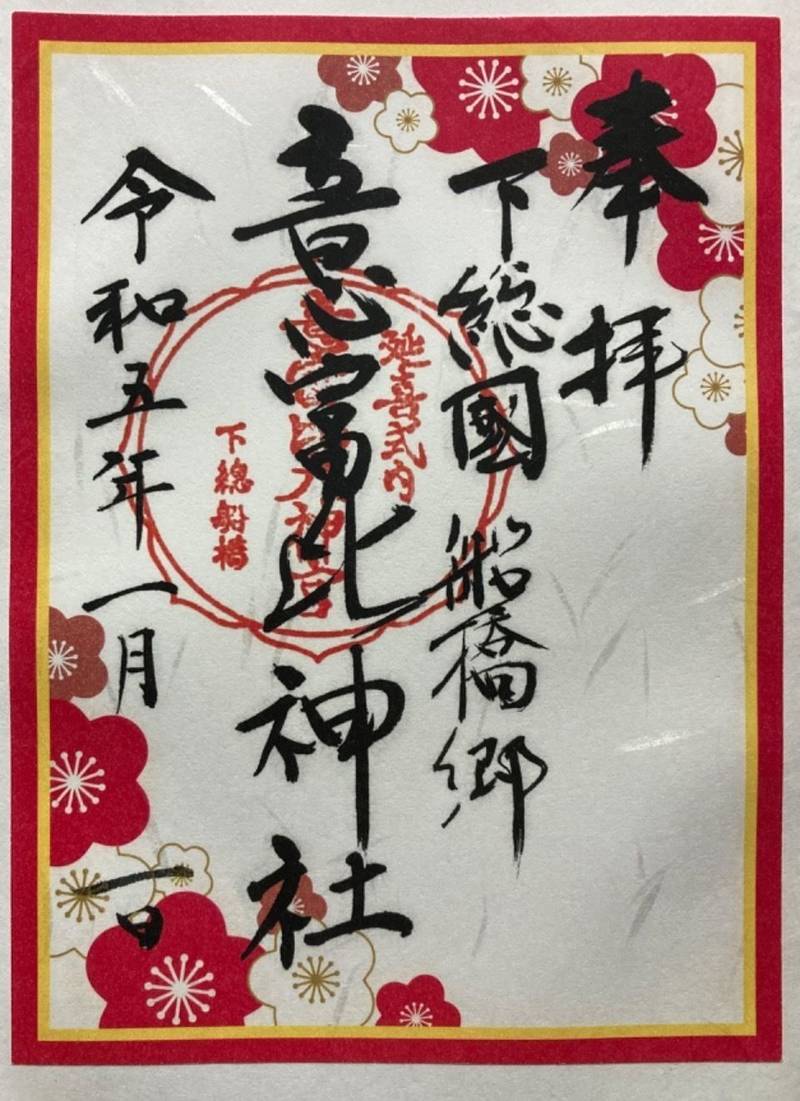 奉拝
下総國船橋郷
意富比神社
令和五年一月一日
延喜式内
意富比大神宮
下総船橋